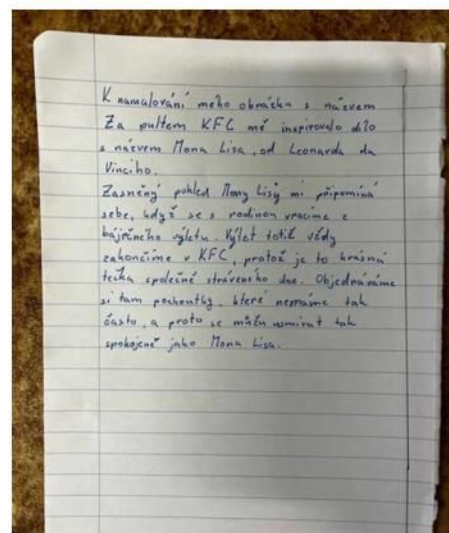 K namalování mého obrázku s názvem
Za pultem KFC mě inspirovalo dílo
s názvem Mona Lisa, od Leonarda da
Vinciho.
Zasněný pohled Mony Lisy mi připomíná
sebe, když se s rodinou vracíme z
báječného výletu. Výlet totiž vždy
zakončíme v KFC, protož je to krásná
tečka společně stráveného dne. Objednáváme
si tam pochoutky, které nemáme tak
často, a proto se můžu usmívat tak
spokojeně jako Mona Lisa.